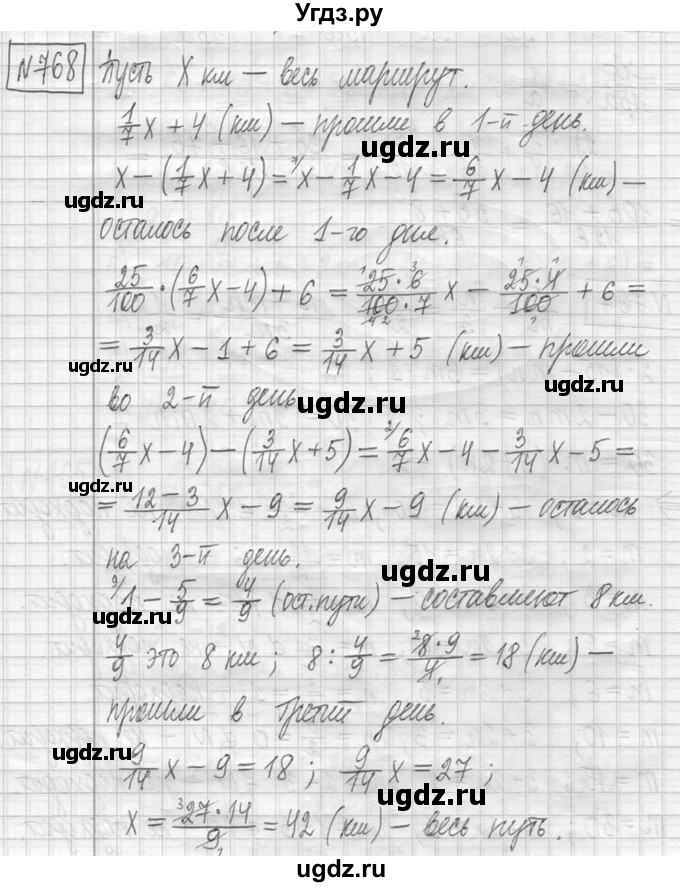 Угдз.ру
№768 Пусть x км – весь маршрут.
1/7 x + 4 (км) – прошли в 1-й день.
x – (1/7 x + 4) = ⁷⁄x – 1/7 x – 4 = 6/7 x – 4 (км) –
осталось после 1-го дня.
25/100 · (6/7 x – 4) + 6 = (25 · 6)/(100 · 7) x – (25 · 4)/100 + 6 =
= 3/14 x – 1 + 6 = 3/14 x + 5 (км) – прошли
во 2-й день
(6/7 x – 4) – (3/14 x + 5) = ²⁄6/7 x – 4 – 3/14 x – 5 =
= (12 – 3)/14 x – 9 = 9/14 x – 9 (км) – осталось
на 3-й день.
⁹⁄1 – 5/9 = 4/9 (ост. пути) – составляют 8 км.
4/9 это 8 км; 8 : 4/9 = (8 · 9)/4 = 18 (км) –
прошли в третий день.
9/14 x – 9 = 18; 9/14 x = 27;
x = (27 · 14)/9 = 42 (км) – весь путь.
ugdz.ru
ugdz.ru
ugdz.ru
ugdz.ru
ugdz.ru
ugdz.ru
ugdz.ru
ugdz.ru
ugdz.ru
ugdz.ru
ugdz.ru
ugdz.ru